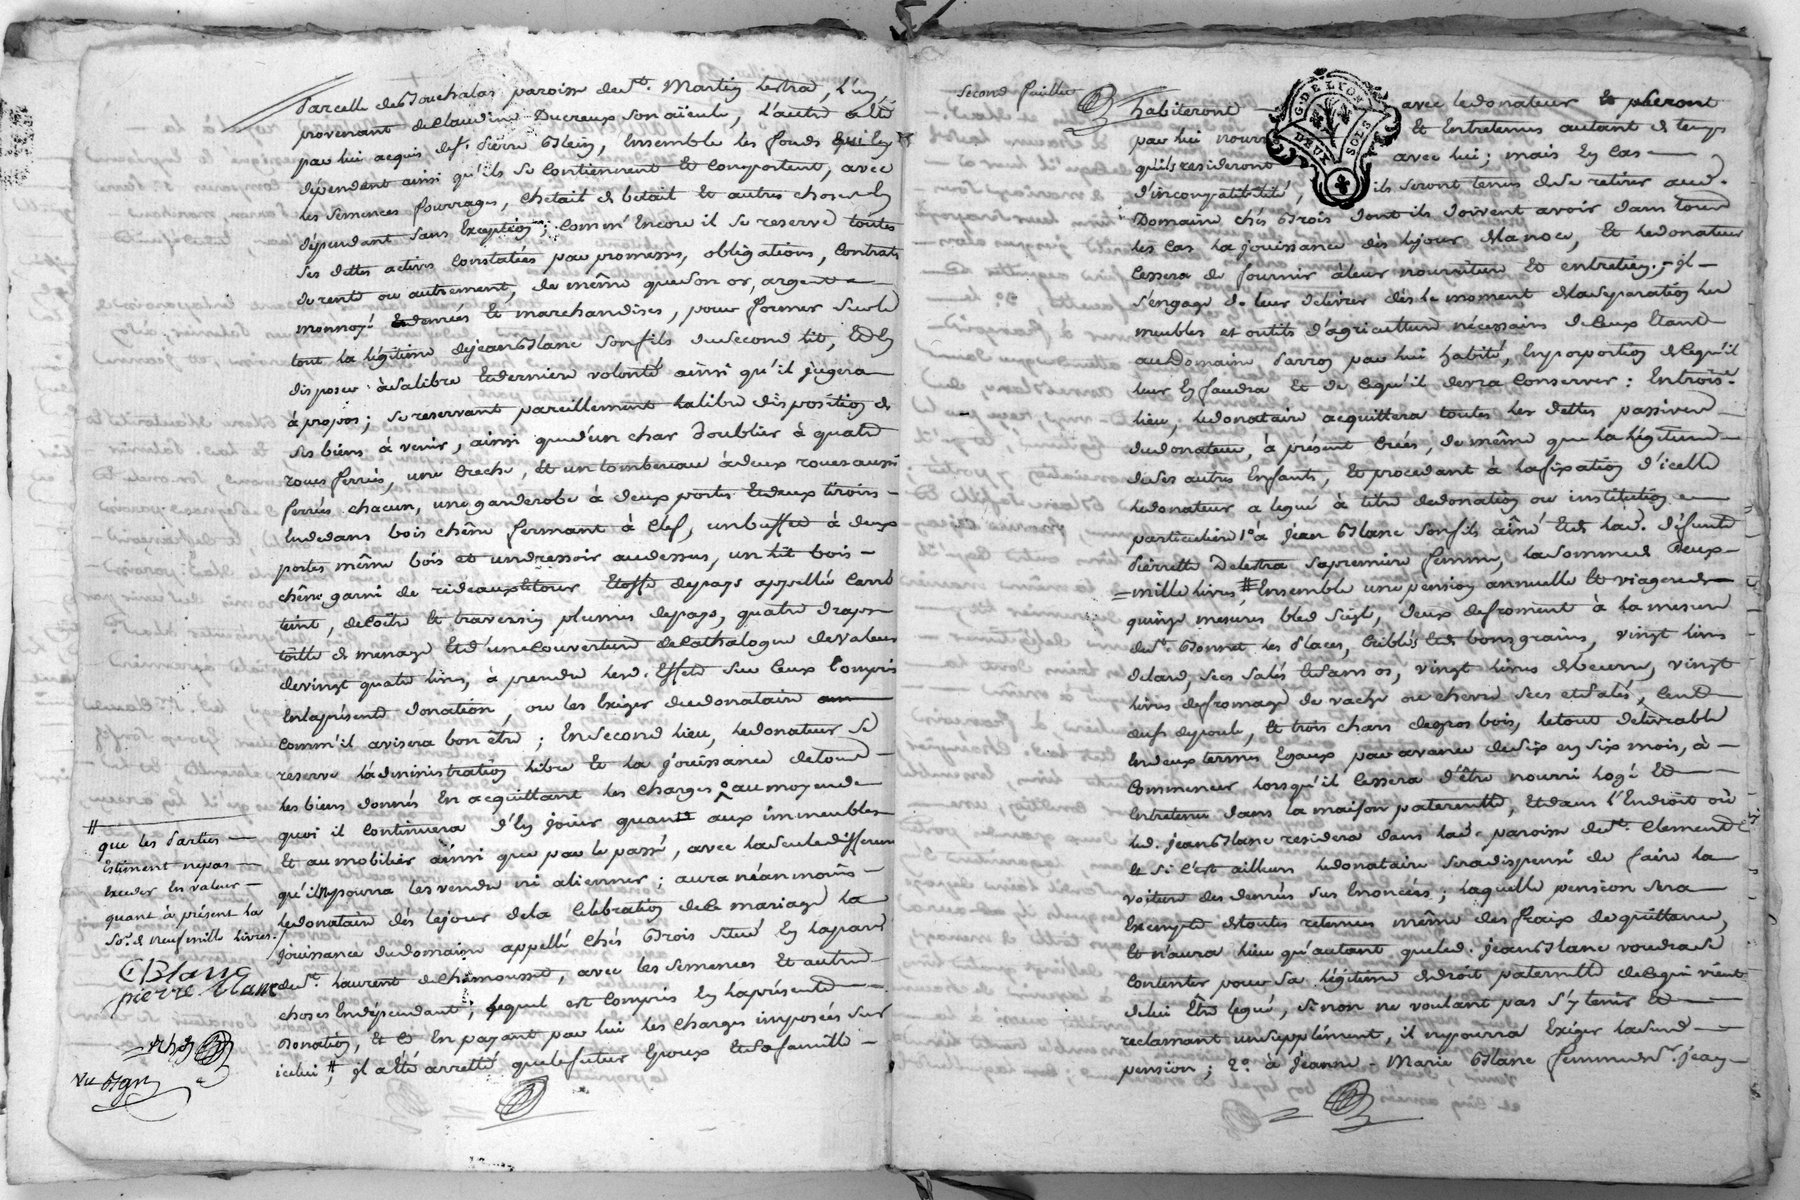 Parcelle des Bouchalas paroisse de St. Martin lestra, l'un
provenant de Claudine Ducreux son aïeule, l'autre été
par lui acquis de f. Pierre Blein, Ensemble les fonds qui en
dépendent ainsi qu'ils se Contiennent Et Comportent, avec
les semences fourrages, chetail et betail Et autres choses en
dépendant sans Exception; Comm'Encore il se reserve toutes
ses dettes actives Constatées par promesses, obligations, Contrats
de rente ou autrement, de même que son or, argent
monnoyé Et denrées Et marchandises, pour former sur le
tout la légitime de jean Blanc son fils du second lit, Et En
disposer à sa libre Et derniere volonté ainsi qu'il jugera
à propos; se reservant pareillement la libre disposition de
ses biens à venir, ainsi que d'un char doublier à quatre
roues ferrées, une Creche, Et un tombereau à deux roues aussi
ferrées chacun, une garderobe à deux portes Et deux tiroirs
au dedans bois chêne fermant à clef, un buffet à deux
portes même bois et un dressoir au dessus, un lit bois
chêne garni de rideaux Et tour Etoffe de pays appellée Carré
teint, de Coëtre Et traversin plumes de pays, quatre draps
toille de menage Et d'une Couverture de Cathalogne de valeur
de vingt quatre livres, à prendre lesd. Effets sur Ceux Compris
En la présente donation, ou les Exiger du donataire
Comm'il avisera bon être; En second lieu, le donateur se
reserve l'administration libre Et la jouissance de tous
les biens donnés En acquittant les Charges; au moyen de
quoi il Continuera d'En jouir quant aux immeubles
Et au mobilier ainsi que par le passé, avec la seule difference
qu'il ne pourra les vendre ni aliener; aura néanmoins
le donataire dès le jour de la Celebration de Ce mariage la
jouissance du domaine appellé Chés Brois situé En la parse
de St. laurent de Chamousset, avec les semences Et autres
choses En dépendant, lequel est Compris En la présente
Donation, Et Ce En payant par lui les Charges imposées sur
icelui # il a été arretté que le futur Epoux Et sa famille
# que les Parties
Estiment ne pas
Exceder En valeur
quant à présent la
So. de neuf mille livres.
C Blanc
pierre blanc
Second feuillet
habiteront avec le donateur Et seront
par lui nourris Et Entretenus autant de temps
qu'ils resideront avec lui; mais En Cas
d'incompatibilité, ils seront tenus de se retirer aud.
Domaine chés Brois dont ils doivent avoir dans tous
les Cas la jouissance dès le jour des Noces, Et le donateur
Cessera de fournir à leur nourriture Et entretien; il
s'engage de leur délivrer dès le moment de la separation les
meubles et outils d'agriculture nécessaires de Ceux Etant
au Domaine Parron par lui habité, En proportion de Ce qu'il
leur En faudra Et de Ce qu'il devra Conserver: En troise.
lieu, le donataire acquittera toutes les dettes passives
du donateur, à présent Créés, de même que la légitime
de ses autres Enfants, Et procedant à la fixation d'icelle
le donateur a legué à titre de donation ou institution
particuliere 1°. à Jean Blanc son fils aîné Et de lad. défunte
Pierrette Delestra sa premiere femme, la somme de Deux
mille livres, # Ensemble une pension annuelle Et viagere de
quinze mesures bled seigle, deux de froment à la mesure
de St. Bonnet les Places, Criblés Et de bons grains, vingt livres
de lard, secs salés Et sans os, vingt livres de beurre, vingt
livres de fromage de vache ou chevre secs et salés, Cent
œufs de poule, Et trois chars de gros bois, le tout délivrable
En deux termes Egaux par avance de six en six mois, à
Commencer lorsqu'il Cessera d'être nourri logé Et
Entretenu dans la maison paternelle, Et dans l'Endroit où
led. jean Blanc residera dans lad. paroisse de St. Clement
Et si C'est ailleurs le donataire sera dispensé de faire la
voiture des denrées sus Enoncées; laquelle pension sera
Exempte de toutes retenues même des fraix de quittance,
Et n'aura lieu qu'autant que led. jean Blanc voudra se
Contenter pour sa légitime de droit paternelle de Ce qui vient
de lui Être legué, sinon ne voulant pas s'y tenir Et
reclamant un supplément, il ne pourra Exiger lasusd
pension; 2°. à Jeanne-Marie Blanc femme de Sr. jean
G. DE LYON
DEUX SOLS